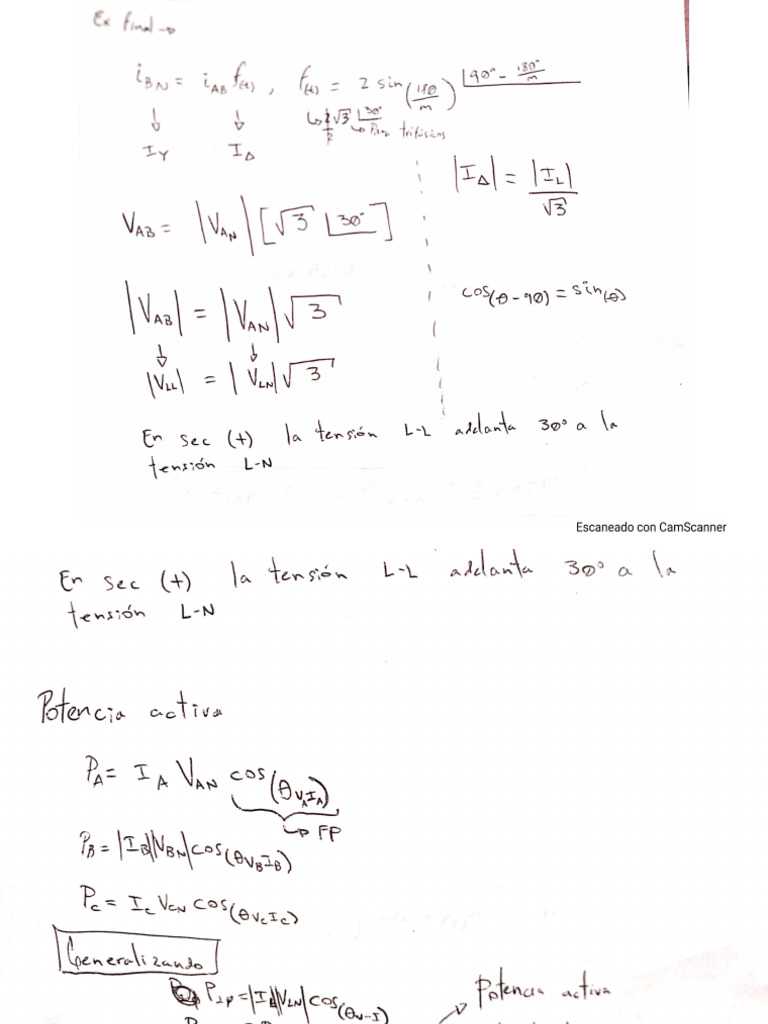 Ex final →
i_BN = i_AB f(t) , f(t) = 2 sin(180/m) ∠90° - 180°/m
↳ √3 ∠30° → Para trifásicos
I_Y I_Δ
|I_Δ| = |I_L| / √3
V_AB = |V_AN| [√3 ∠30°]
cos(θ-90) = sin(θ)
|V_AB| = |V_AN| √3
|V_LL| = |V_LN| √3
En sec (+) la tensión L-L adelanta 30° a la
tensión L-N
Escaneado con CamScanner
En sec (+) la tensión L-L adelanta 30° a la
tensión L-N
Potencia activa
P_A = I_A V_AN cos(θ V_A I_A)
↳ FP
P_B = |I_B||V_BN| cos(θ V_B I_B)
P_C = I_C V_CN cos(θ V_C I_C)
Generalizando
P_1φ = |I_L||V_LN| cos(θ V-I)
Potencia activa